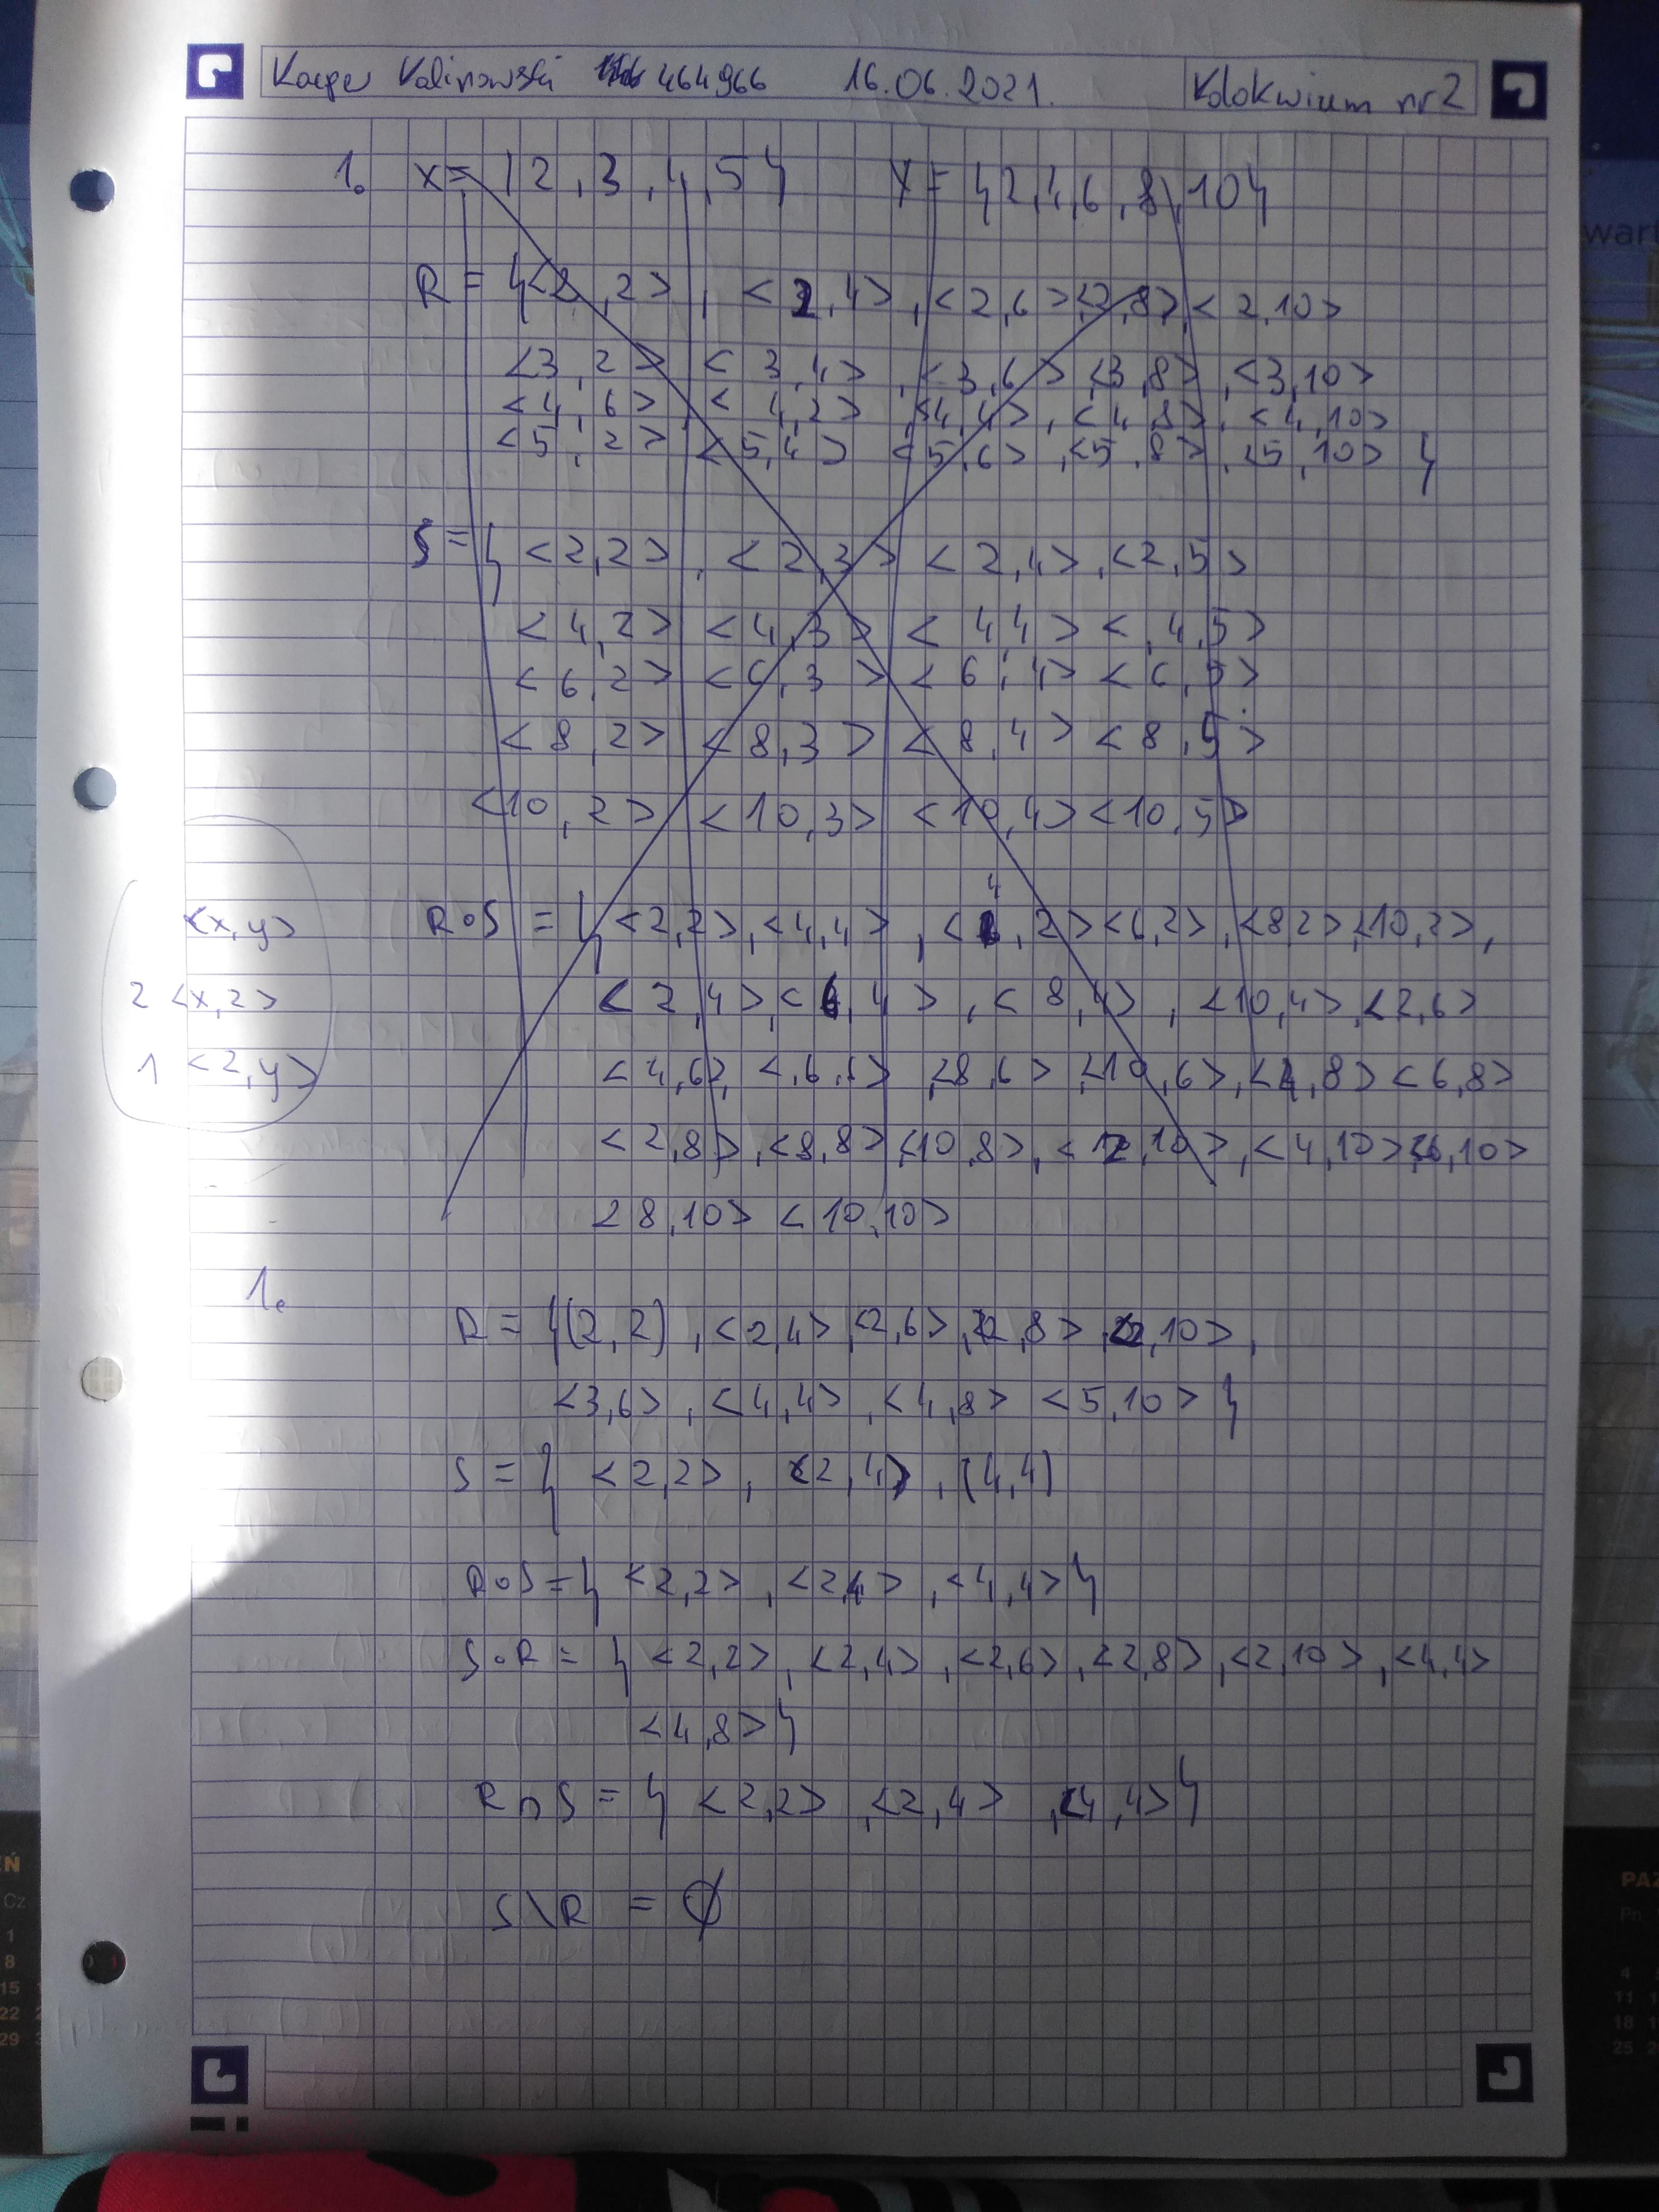 Kacper Kalinowski 464966 16.06.2021. Kolokwium nr 2
1. X = {2,3,4,5} Y = {2,4,6,8,10}
R = {<2,2>, <2,4>, <2,6> <2,8>, <2,10>
<3,2> < 3,4>, <3,6> <3,8>, <3,10>
<4,6> < 4,2>, <4,4>, <4,8>, <4,10>
<5,2> <5,4> <5,6>, <5,8>, <5,10> }
S = { <2,2>, <2,3> <2,4>, <2,5>
<4,2> <4,3> <4,4> <4,5>
<6,2> <6,3> <6,4> <6,5>
<8,2> <8,3> <8,4> <8,5>
<10,2> <10,3> <10,4> <10,5>
<x,y>
R∘S = { <2,2>, <4,4>, <4,2> <6,2>, <8,2>, <10,2>,
2 <x,z>
<2,4>, <6,4>, <8,4>, <10,4>, <2,6>
1 <z,y>
<4,6>, <6,6>, <8,6>, <10,6>, <4,8> <6,8>
<2,8>, <8,8>, <10,8>, <2,10>, <4,10> <6,10>
<8,10> <10,10>
1.
R = {(2,2), <2,4>, <2,6>, <2,8>, <2,10>,
<3,6>, <4,4>, <4,8> <5,10> }
S = { <2,2>, <2,4>, (4,4)
R∘S = { <2,2>, <2,4>, <4,4> }
S∘R = { <2,2>, <2,4>, <2,6>, <2,8>, <2,10>, <4,4>
<4,8> }
R∩S = { <2,2>, <2,4>, <4,4> }
S\R = ∅
wart
EŃ
Cz
1
8
15
22
29
PAŹ
Pn
4
11
18
25